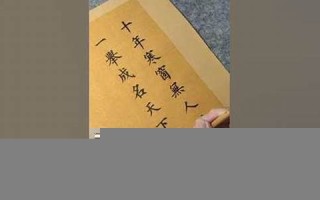 十年寒窗無人
一舉成名天下